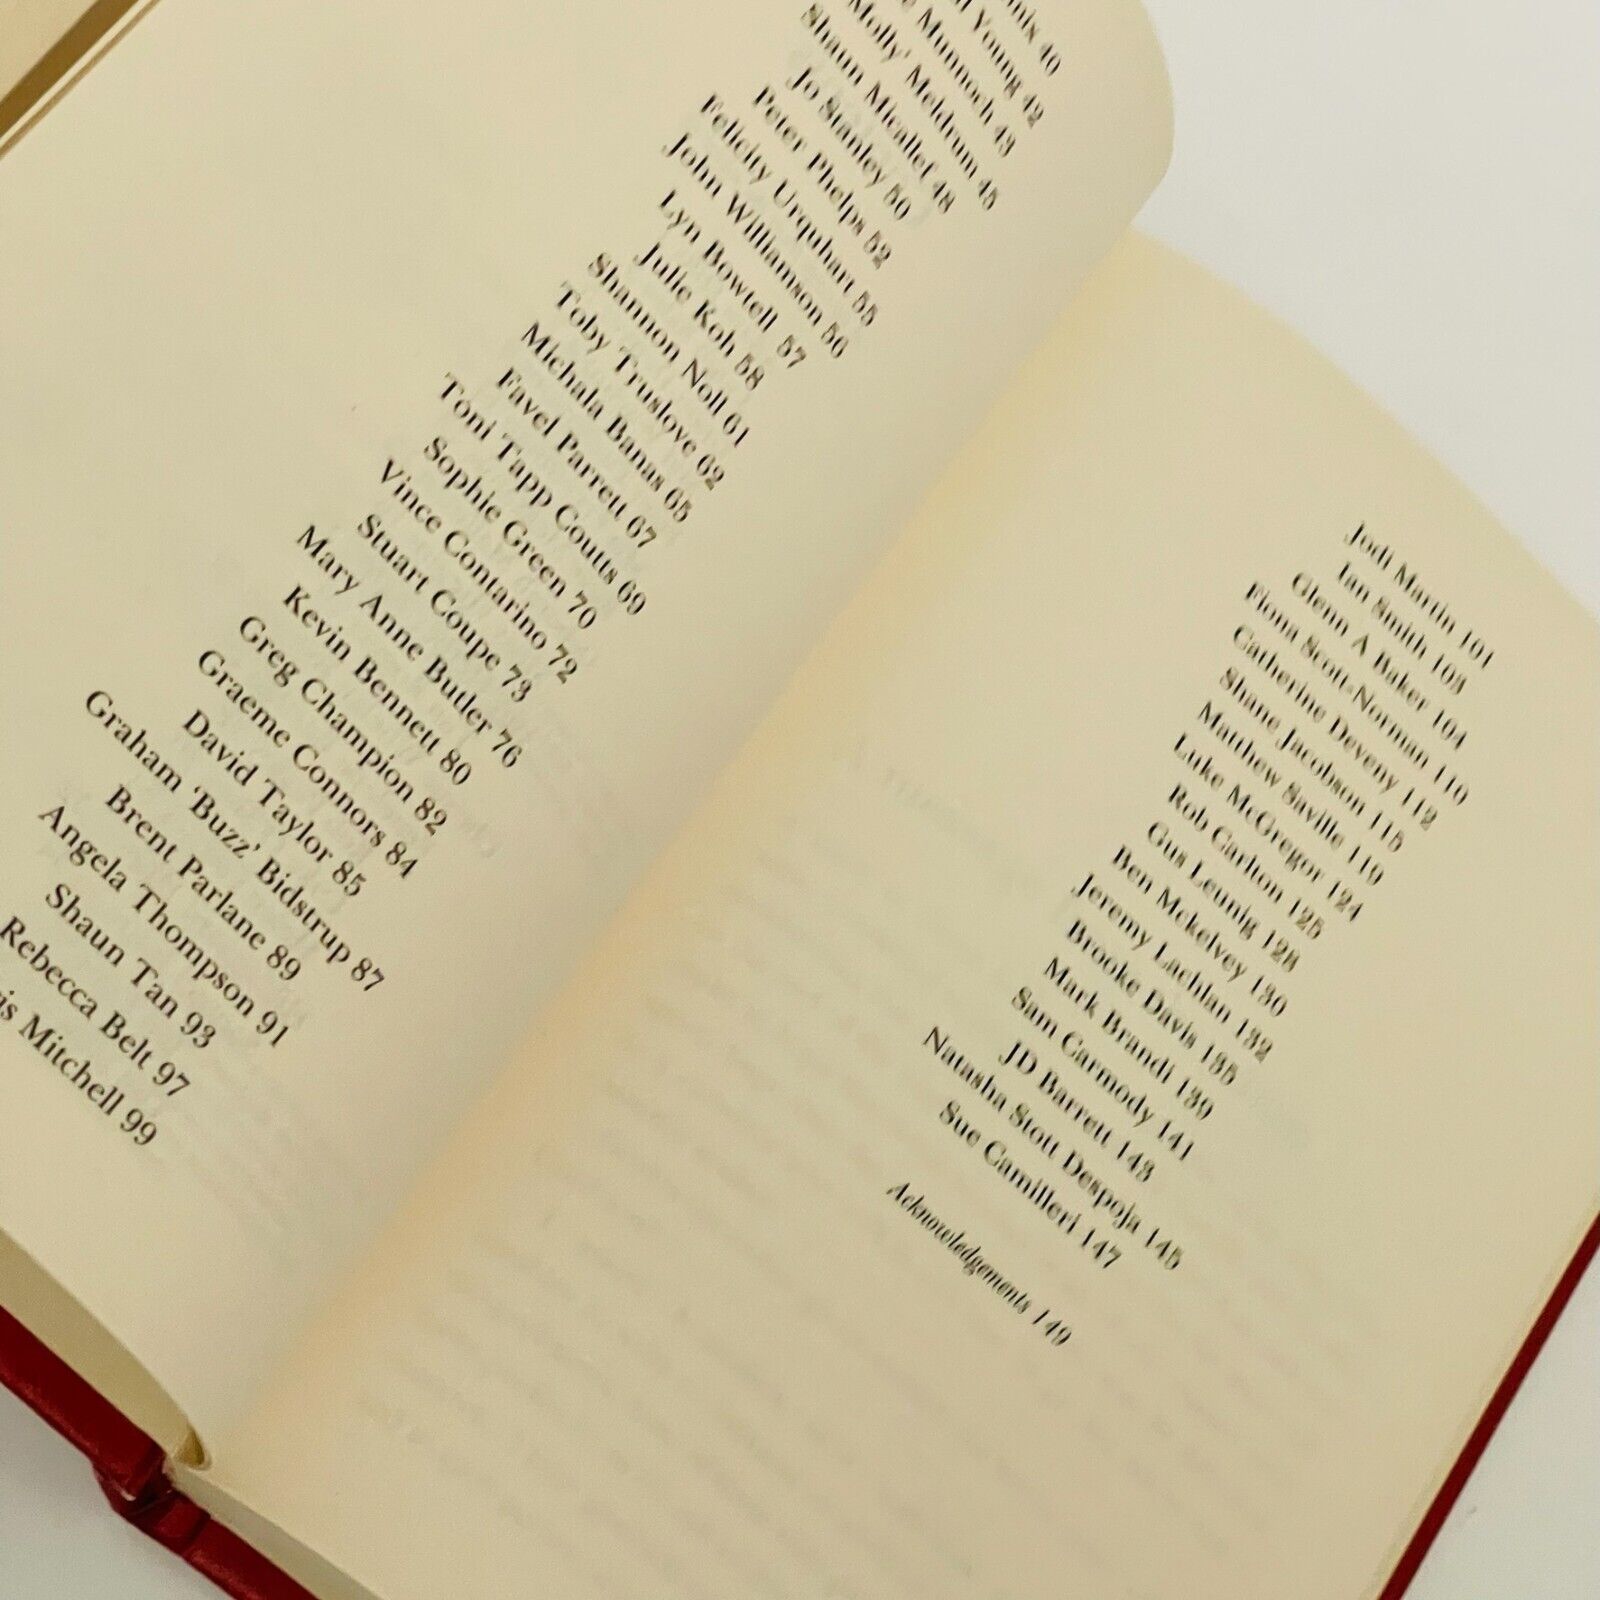 40
Young 42
Munnoch 43
Molly' Meldrum 45
Shaun Micallef 48
Jo Stanley 50
Peter Phelps 52
Felicity Urquhart 55
John Williamson 56
Lyn Bowtell 57
Julie Koh 58
Shannon Noll 61
Toby Truslove 62
Michala Banas 65
Favel Parrett 67
Toni Tapp Coutts 69
Sophie Green 70
Vince Contarino 72
Stuart Coupe 73
Mary Anne Butler 76
Kevin Bennett 80
Greg Champion 82
Graeme Connors 84
David Taylor 85
Graham 'Buzz' Bidstrup 87
Brent Parlane 89
Angela Thompson 91
Shaun Tan 93
Rebecca Belt 97
Mitchell 99
Jodi Martin 101
Ian Smith 103
Glenn A Baker 104
Fiona Scott-Norman 110
Catherine Deveny 112
Shane Jacobson 115
Matthew Saville 119
Luke McGregor 124
Rob Carlton 125
Gus Leunig 128
Ben Mckelvey 130
Jeremy Lachlan 132
Brooke Davis 135
Mark Brandi 139
Sam Carmody 141
JD Barrett 143
Natasha Stott Despoja 145
Sue Camilleri 147
Acknowledgements 149